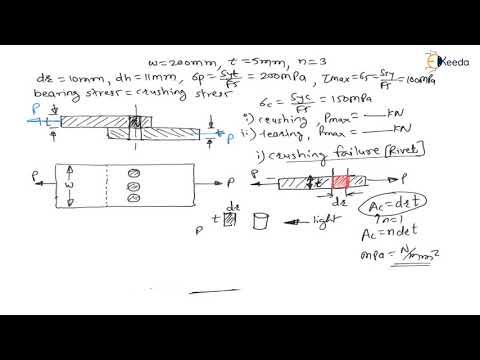 w=200mm, t=5mm, n=3
dr=10mm, dh=11mm, σp=Syt/FS=200mPa, τmax=σs=Ssy/FS=100mPa
bearing stress=crushing stress
σc=Syc/FS=150mPa
i) crushing, Pmax= kN
ii) tearing, Pmax= kN
i) crushing failure [Rivet]
P
t
P
P
t
P
dr
P
W
P
dr
t
P
light
Ac=drt
n=1
Ac=ndrt
mPa=N/mm²
Ekeeda